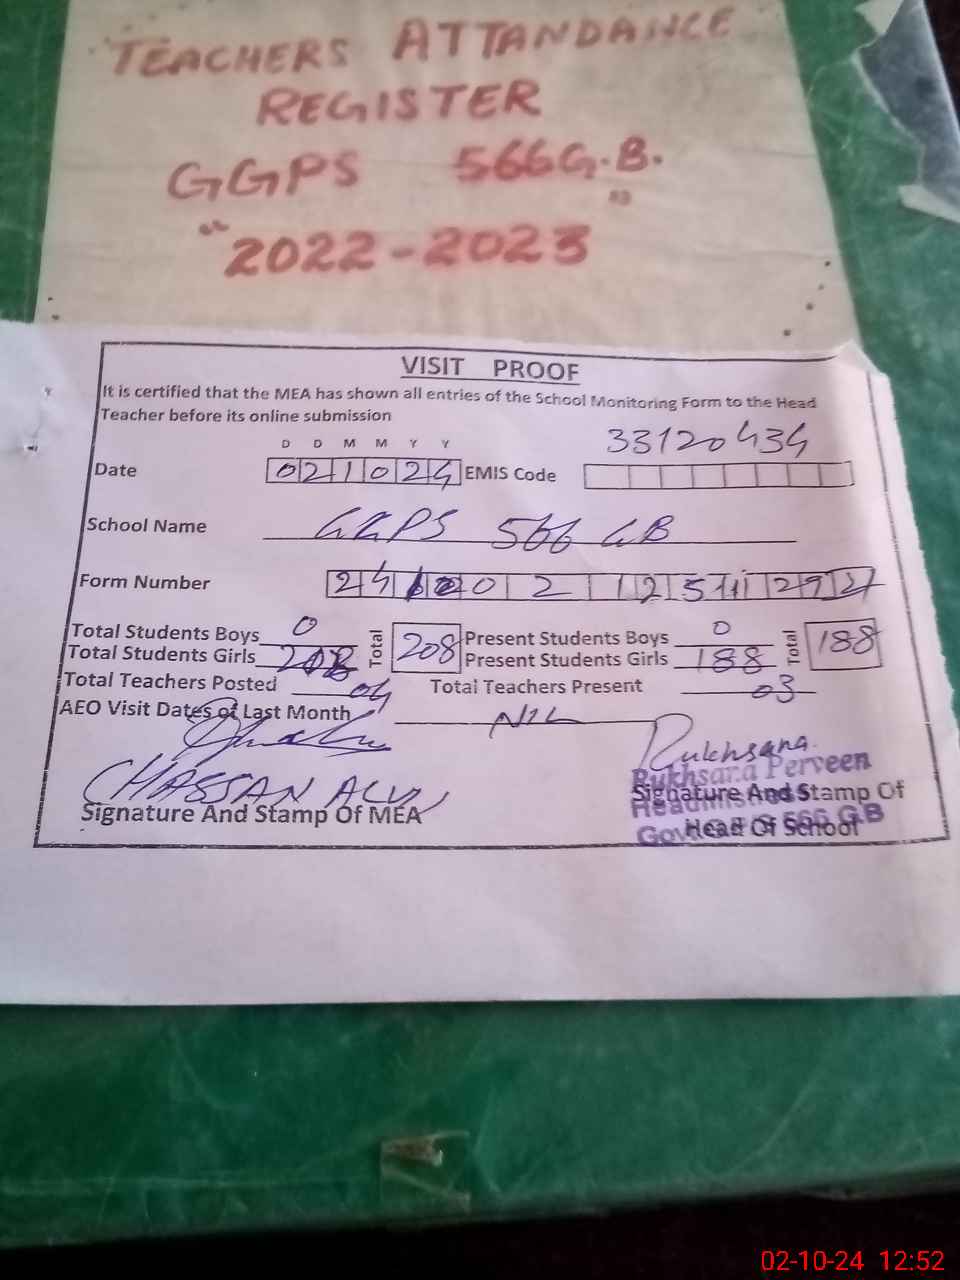 TEACHERS ATTANDANCE
REGISTER
GGPS 566G.B.
"2022-2023
VISIT PROOF
It is certified that the MEA has shown all entries of the School Monitoring Form to the Head
Teacher before its online submission
D D M M Y Y
33120434
Date 021024 EMIS Code
School Name GGPS 566 GB
Form Number
Total Students Boys 0 Total 208 Present Students Boys 0 Total 188
Total Students Girls 208 Present Students Girls 188
Total Teachers Posted 04 Total Teachers Present 03
AEO Visit Dates of Last Month NIL
Rukhsana.
Rukhsana Perveen
HASSAN ALVI
Signature And Stamp Of MEA Signature And Stamp Of
Headmistress
Head Of School
566 GB
02-10-24 12:52